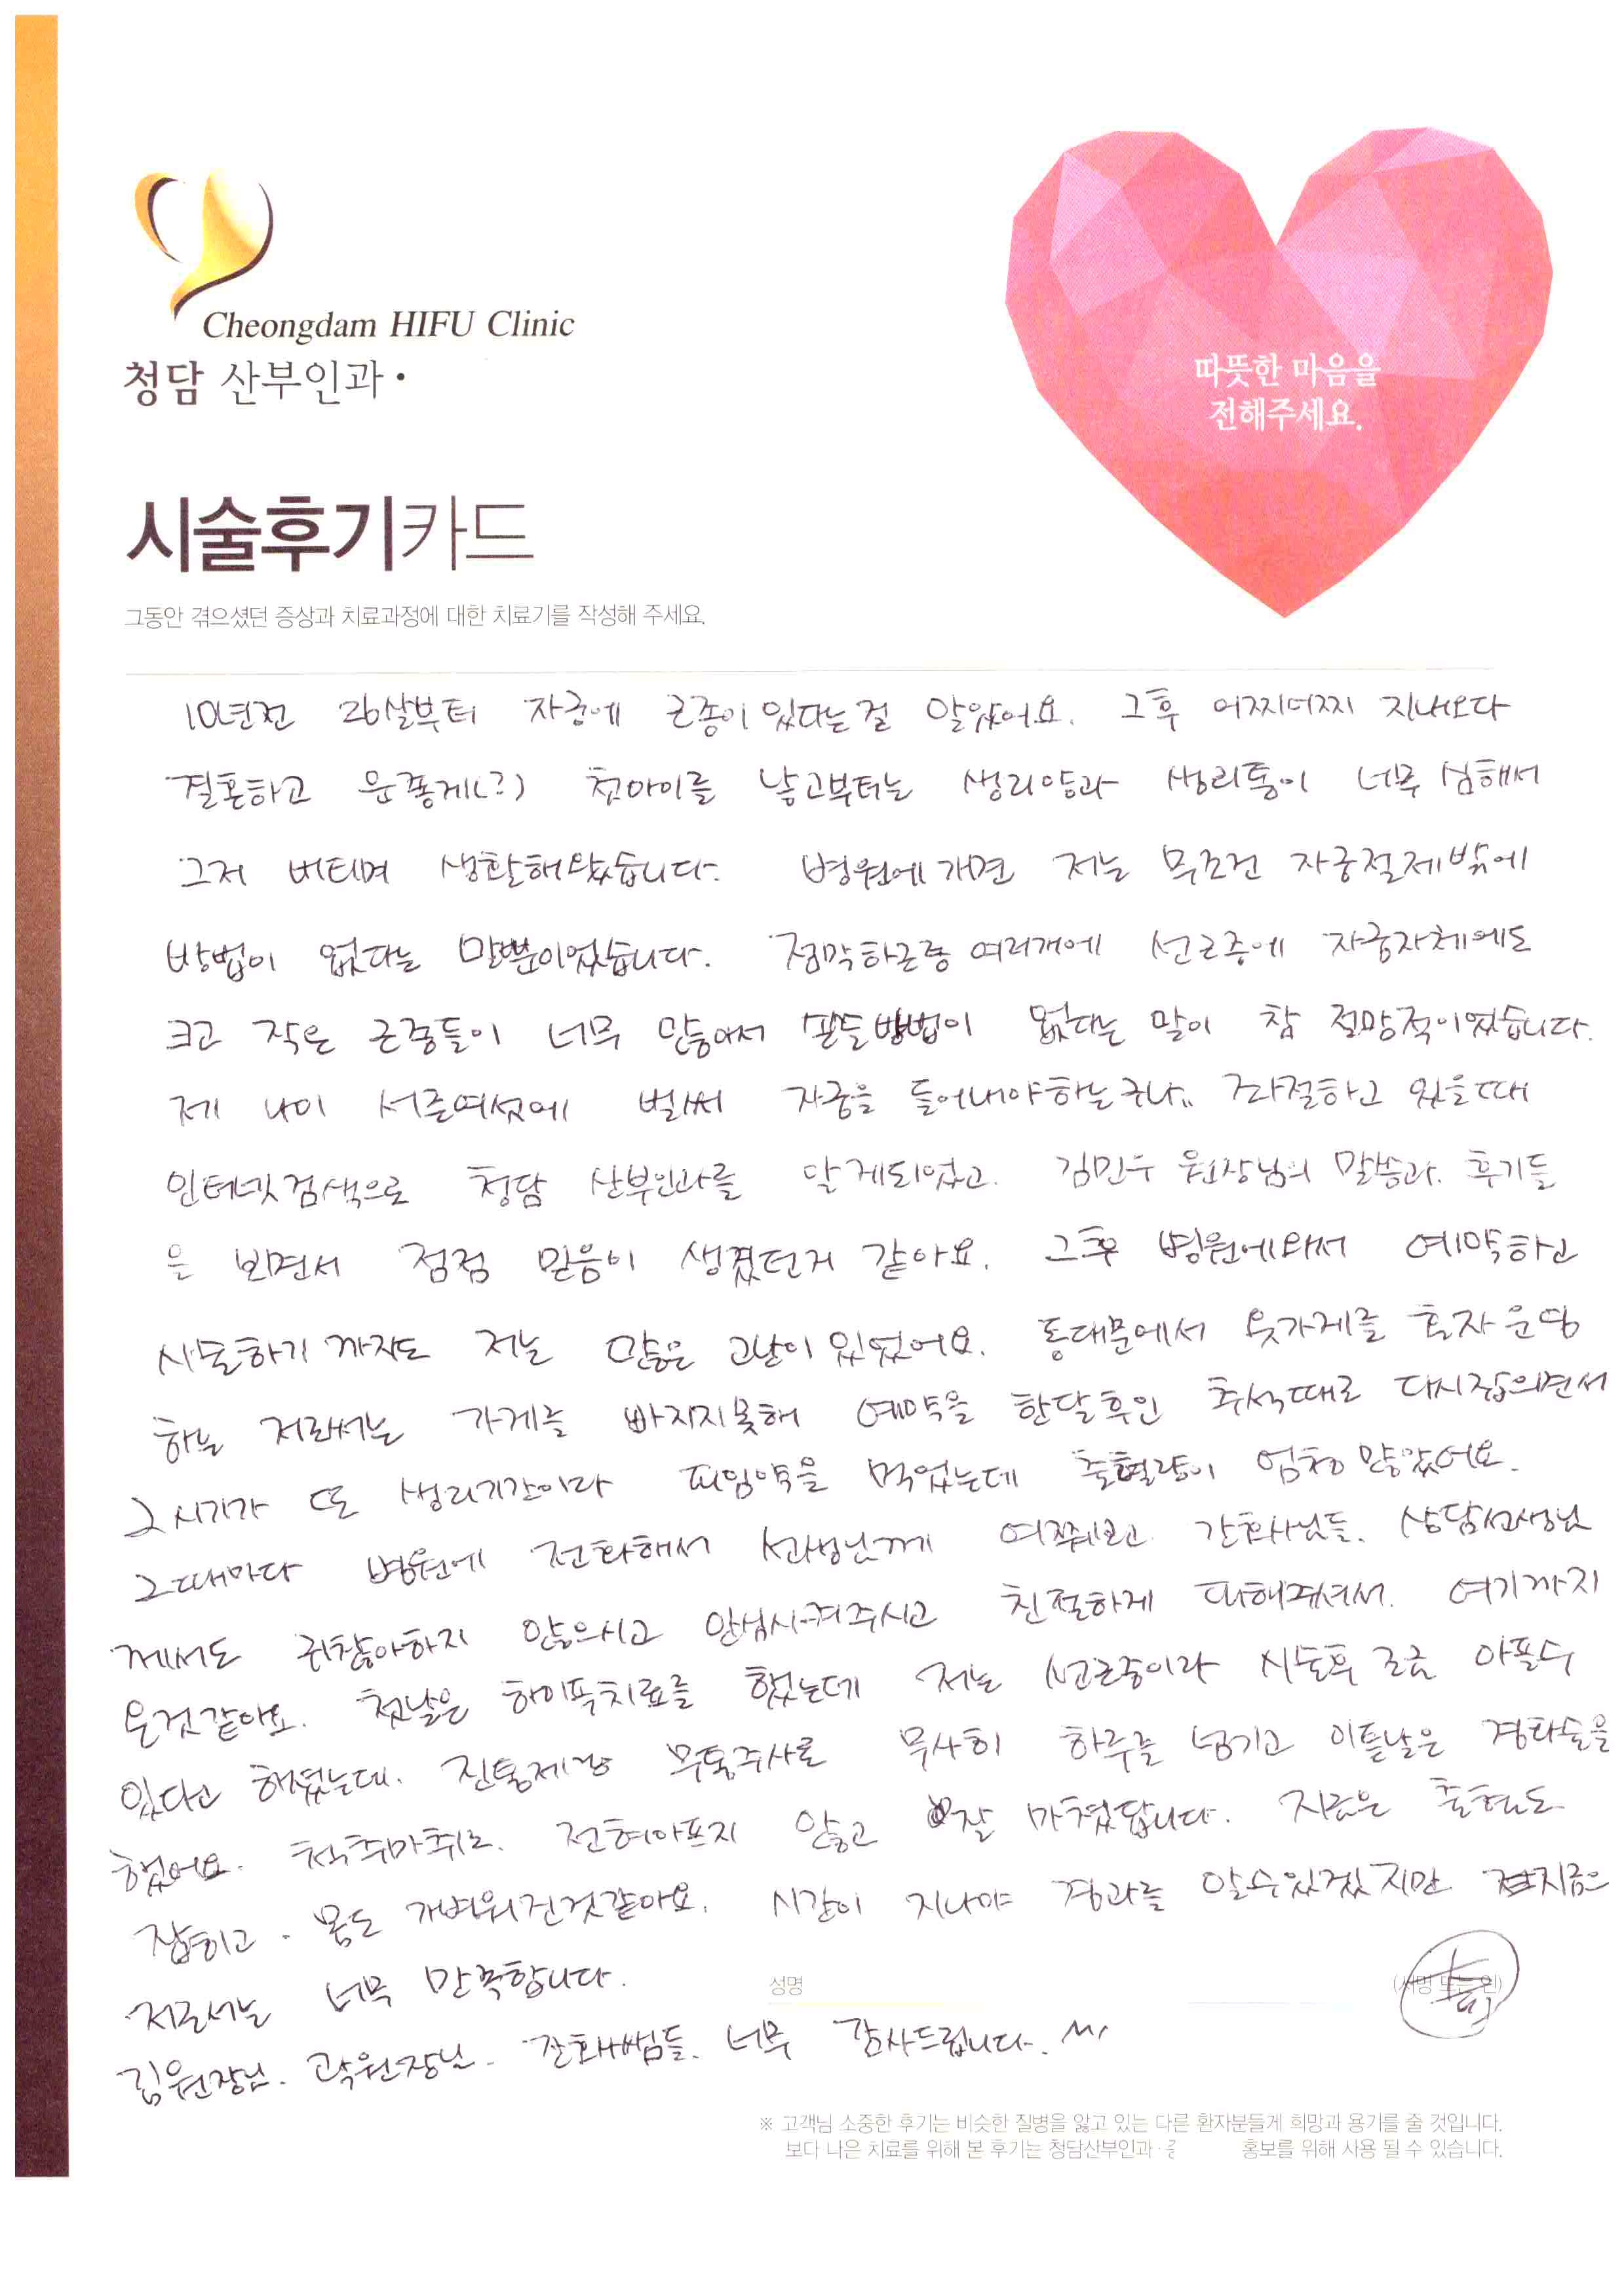 Cheongdam HIFU Clinic
청담 산부인과·
따뜻한 마음을
전해주세요.
시술후기카드
그동안 겪으셨던 증상과 치료과정에 대한 치료기를 작성해 주세요.
10년전 26살부터 자궁에 근종이 있다는걸 알았어요. 그후 어찌어찌 지내오다
결혼하고 운좋게(?) 첫아이를 낳고부터는 생리양과 생리통이 너무 심해서
그저 버티며 생활해왔습니다. 병원에 가면 저는 무조건 자궁절제밖에
방법이 없다는 말뿐이었습니다. 점막하근종 여러개에 선근종에 자궁자체에도
크고 작은 근종들이 너무 많아서 방법이 없다는 말이 참 절망적이었습니다.
제 나이 서른여섯에 벌써 자궁을 들어내야하는구나.. 좌절하고 있을때
인터넷검색으로 청담 산부인과를 알게되었고. 김민우 원장님의 말씀과. 후기들
을 보면서 점점 믿음이 생겼던거 같아요. 그후 병원에와서 예약하고
시술하기 까지도 저는 많은 고난이 있었어요. 동대문에서 옷가게를 혼자 운영
하는 저로서는 가게를 빠지지못해 예약을 한달후인 추석때로 다시잡으면서
그시기가 또 생리기간이라 피임약을 먹었는데 출혈량이 엄청 많았어요.
그때마다 병원에 전화해서 선생님께 여쭤보고 간호사님들. 상담선생님
께서도 귀찮아하지 않으시고 안심시켜주시고 친절하게 대해주셔서. 여기까지
온것같아요. 첫날은 하이푸치료를 했는데 저는 선근증이라 시술후 조금 아플수
있다고 하셨는데. 진통제랑 무통주사로 무사히 하루를 넘기고 이튿날은 경화술을
했어요. 척추마취로. 전혀아프지 않고 잘 마쳤답니다. 지금은 출혈도
잡히고. 몸도 가벼워진것같아요. 시간이 지나야 경과를 알수있겠지만 지금은
저로서는 너무 만족합니다.
성명
(서명 또는 인)
김원장님. 곽원장님. 간호사쌤들. 너무 감사드립니다.
※ 고객님 소중한 후기는 비슷한 질병을 앓고 있는 다른 환자분들게 희망과 용기를 줄 것입니다.
보다 나은 치료를 위해 본 후기는 청담산부인과· 홍보를 위해 사용 될 수 있습니다.